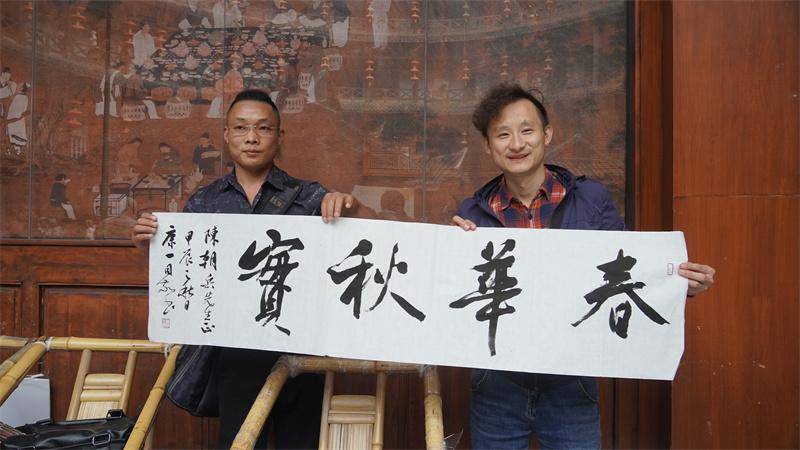 春華秋實
陳朝兵先生正
甲辰之秋日
康一日